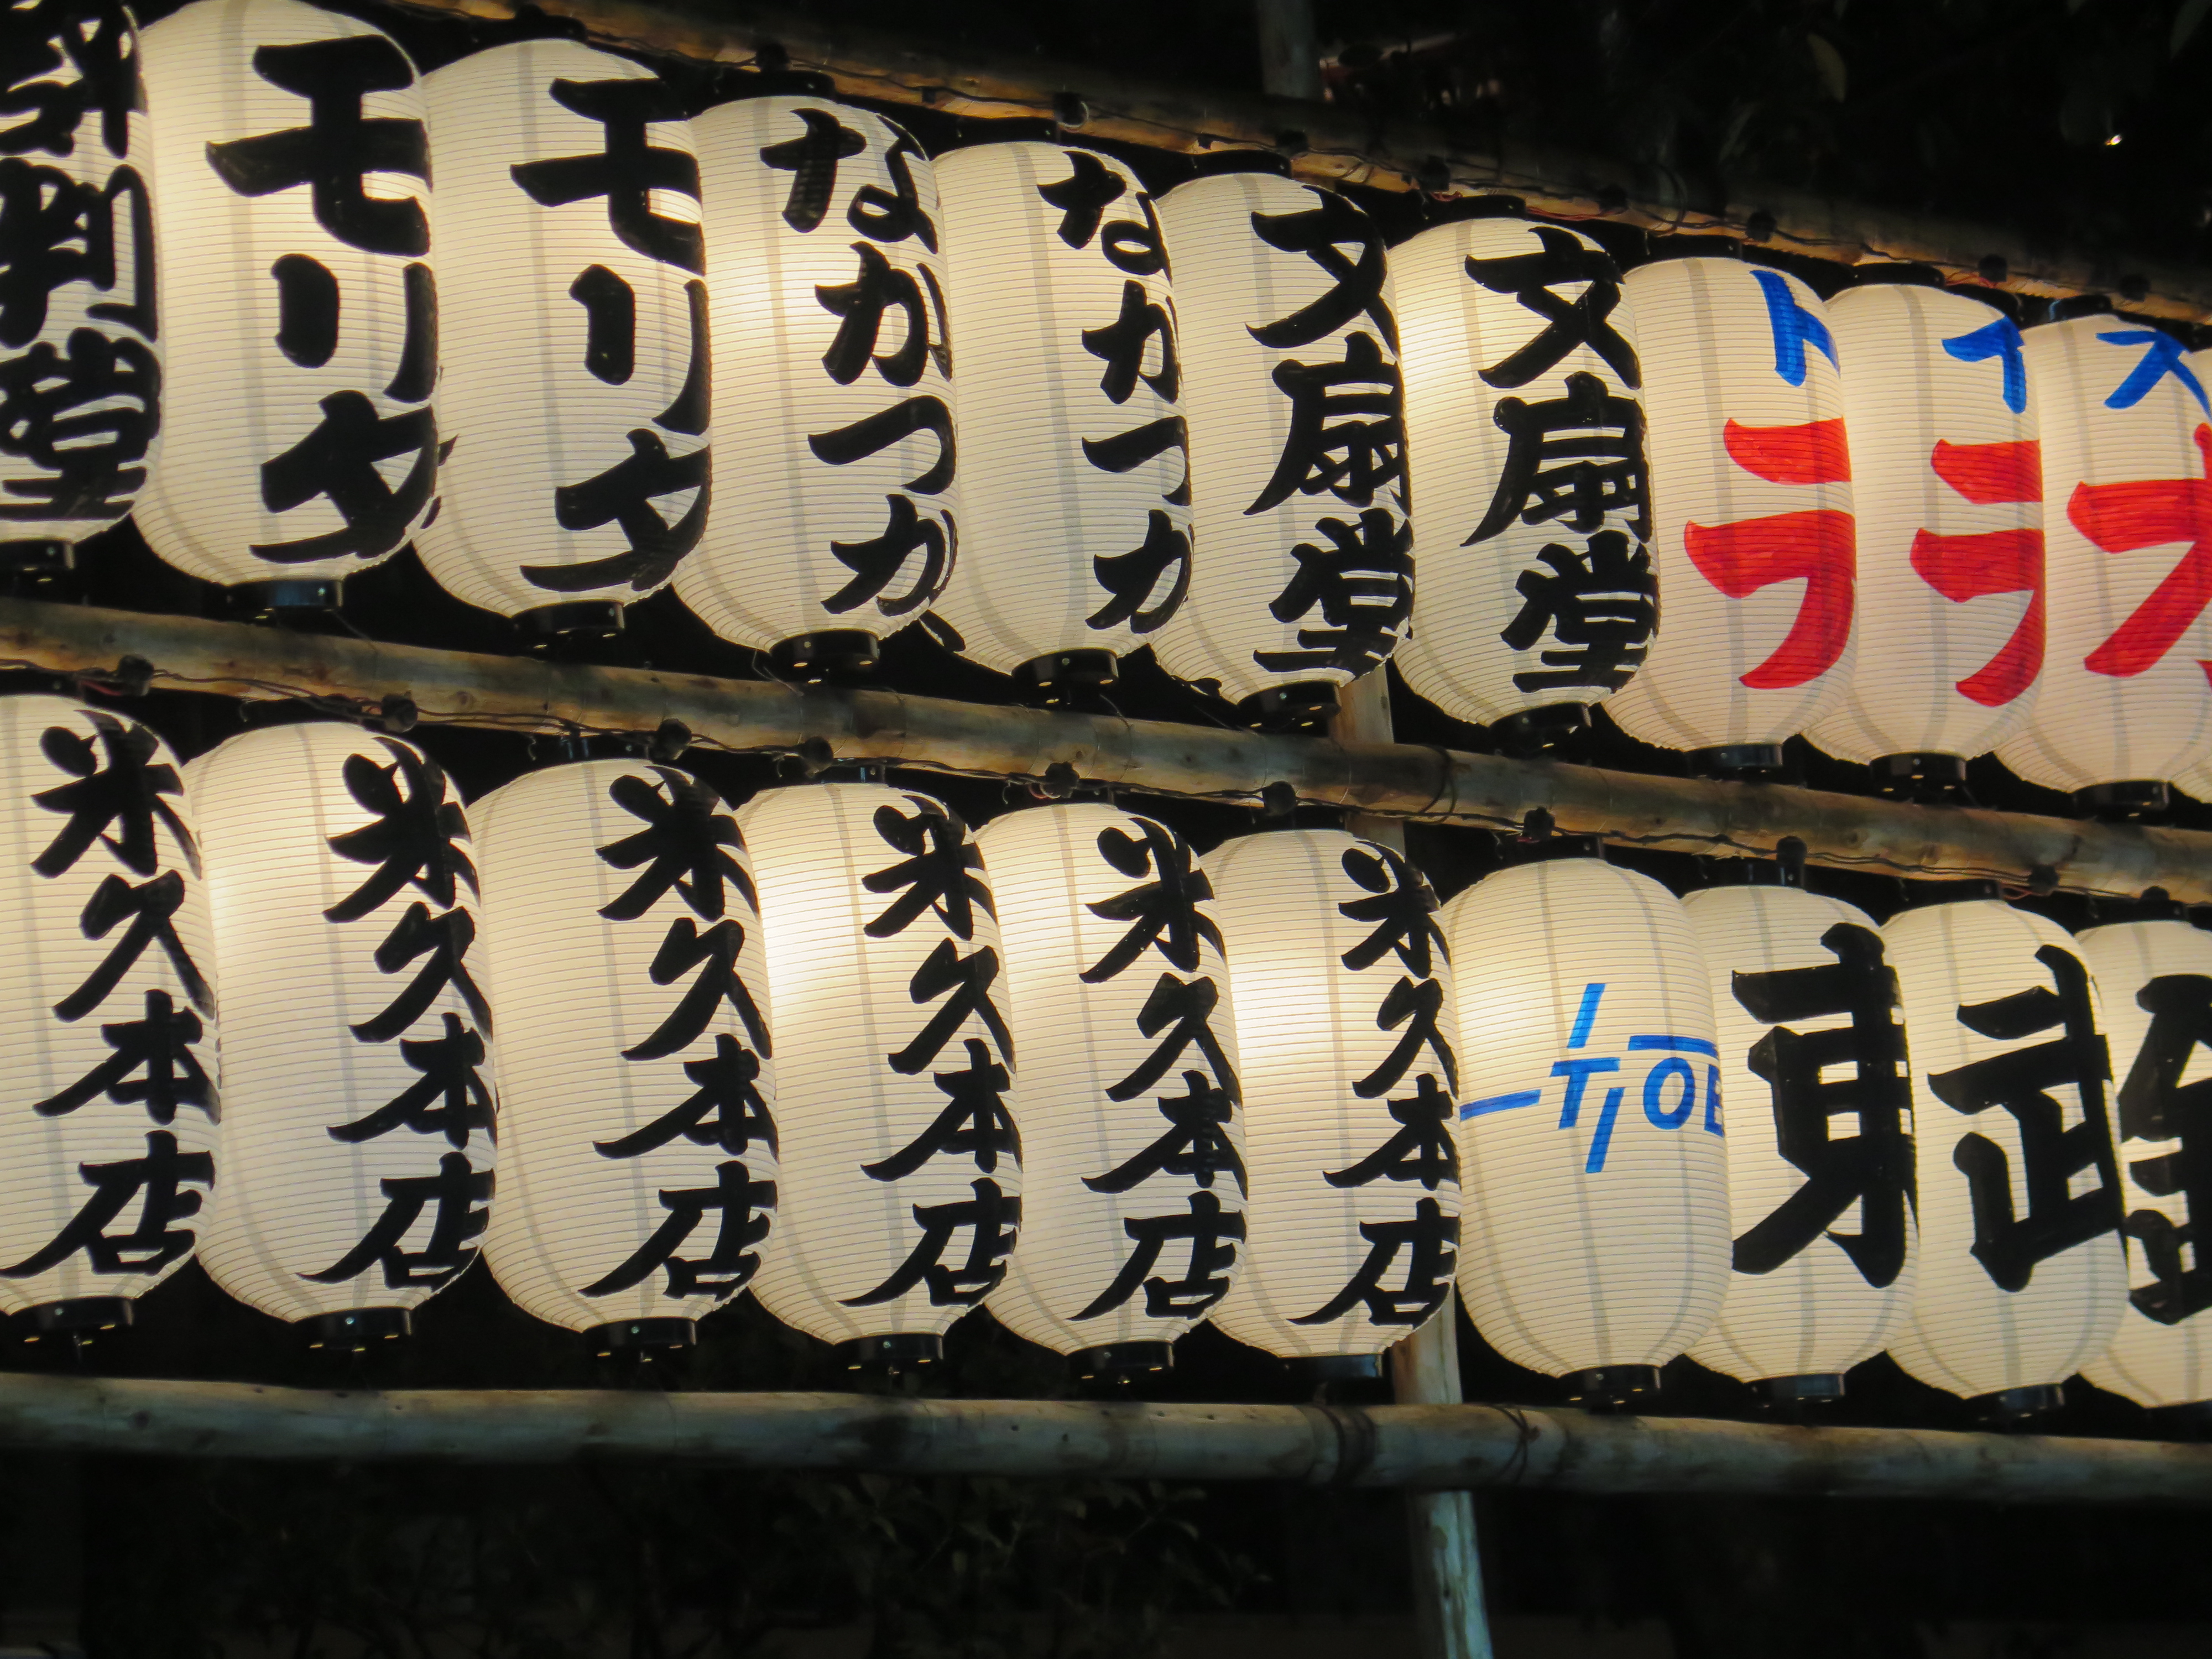 モリタ
モリタ
なかつか
なかつか
文扇堂
文扇堂
ト
ラ
イ
ラ
ス
米久本店
米久本店
米久本店
米久本店
米久本店
米久本店
東
武